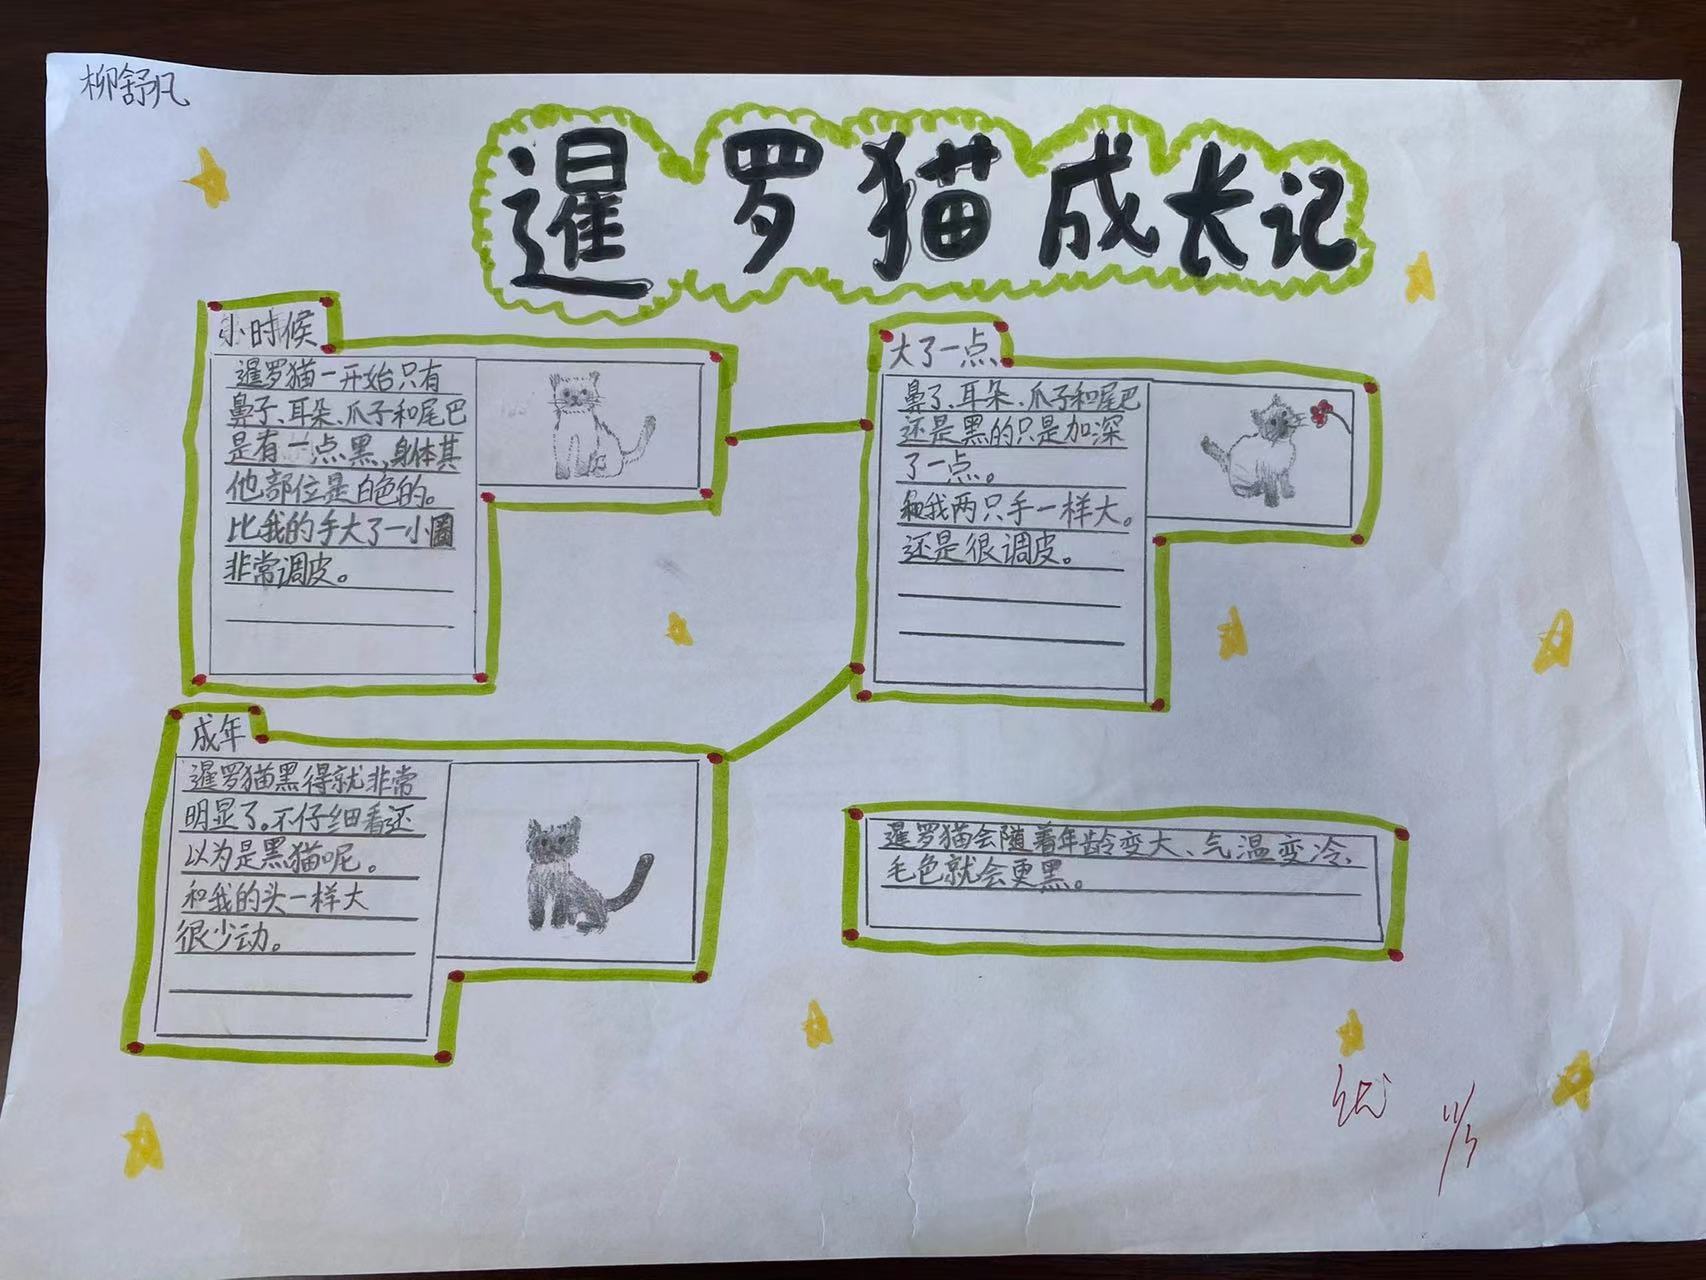 柳舒凡
暹罗猫成长记
小时候
暹罗猫一开始只有
鼻子、耳朵、爪子和尾巴
是有一点黑,身体其
他部位是白色的。
比我的手大了一小圈
非常调皮。
大了一点
鼻子、耳朵、爪子和尾巴
还是黑的只是加深
了一点。
和我两只手一样大。
还是很调皮。
成年
暹罗猫黑得就非常
明显了。不仔细看还
以为是黑猫呢。
和我的头一样大
很少动。
暹罗猫会随着年龄变大、气温变冷、
毛色就会更黑。
优